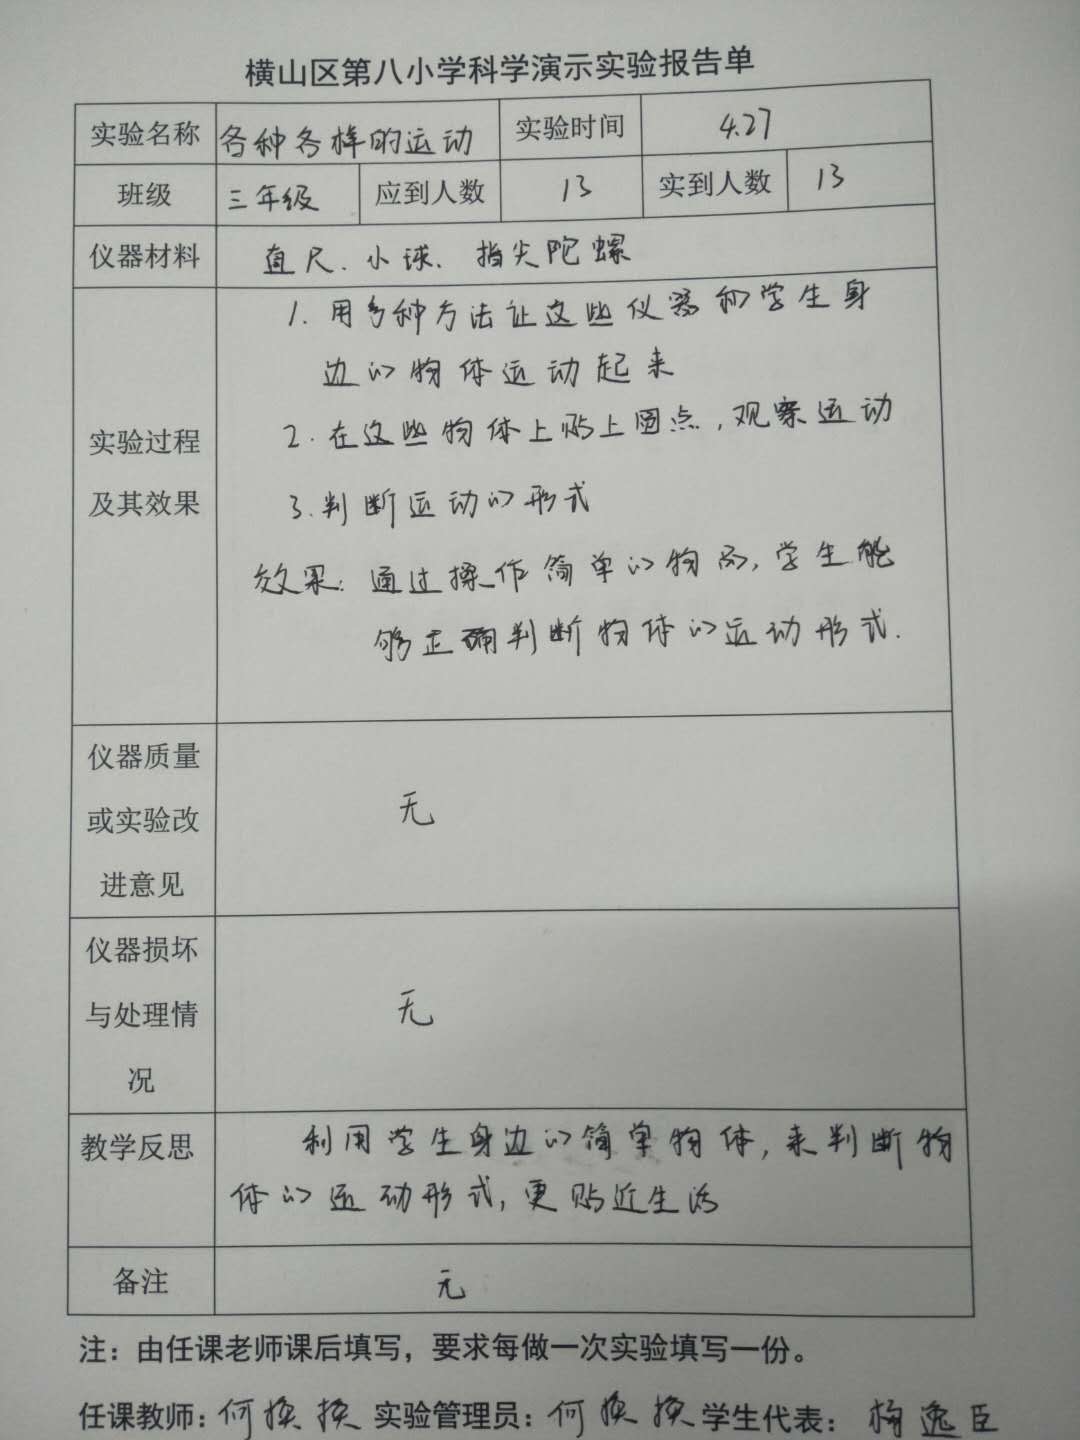 横山区第八小学科学演示实验报告单
实验名称 各种各样的运动 实验时间 4.27
班级 三年级 应到人数 13 实到人数 13
仪器材料 直尺、小球、指尖陀螺
实验过程
及其效果
1. 用多种方法让这些仪器和学生身
边的物体运动起来
2. 在这些物体上贴上圆点，观察运动
3. 判断运动的形式
效果：通过操作简单的物品，学生能
够正确判断物体的运动形式.
仪器质量
或实验改
进意见
无
仪器损坏
与处理情
况
无
教学反思
利用学生身边的简单物体，来判断物
体的运动形式，更贴近生活
备注 无
注：由任课老师课后填写，要求每做一次实验填写一份。
任课教师：何换换 实验管理员：何换换 学生代表： 逸臣